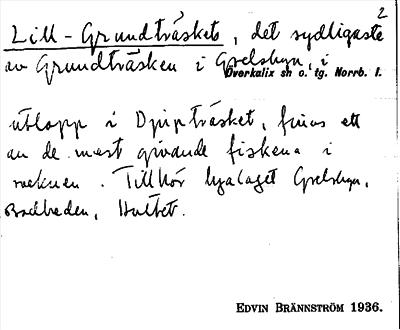 2
Lill-Grundträskets, det sydligaste
av Grundträsken i Grelsbyn, i
Överkalix sn o. tg. Norrb. l.
utlopp i Djupträsket, finns ett
av de mest givande fiskena i
socknen. Tillhör byalaget Grelsbyn,
Bodheden, Hultet.
EDVIN BRÄNNSTRÖM 1936.